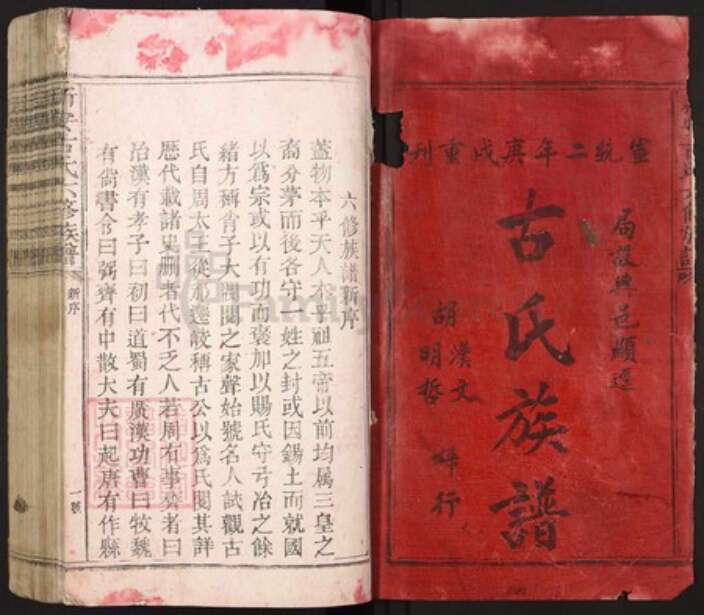 宣統二年庚戌重刊
局設興邑顯逕
古氏族譜
胡漢文
明哲
梓行
六修族譜新序
蓋物本乎天人本乎祖五帝以前均属三皇之
裔分茅而後各守一姓之封或因錫土而就國
以爲宗或以有功而褒加以賜氏守弓冶之餘
緒方稱肖子大閥閱之家聲始號名人試觀古
氏自周太王從邠遷岐稱古公以爲氏閱其詳
歷代載諸史冊者代不乏人若周有事齊者曰
冶漢有孝子曰初曰道蜀有廣漢功曹曰牧魏
有尚書令曰弼齊有中散大夫曰起唐有作縣
古氏六修族譜
新序
一號